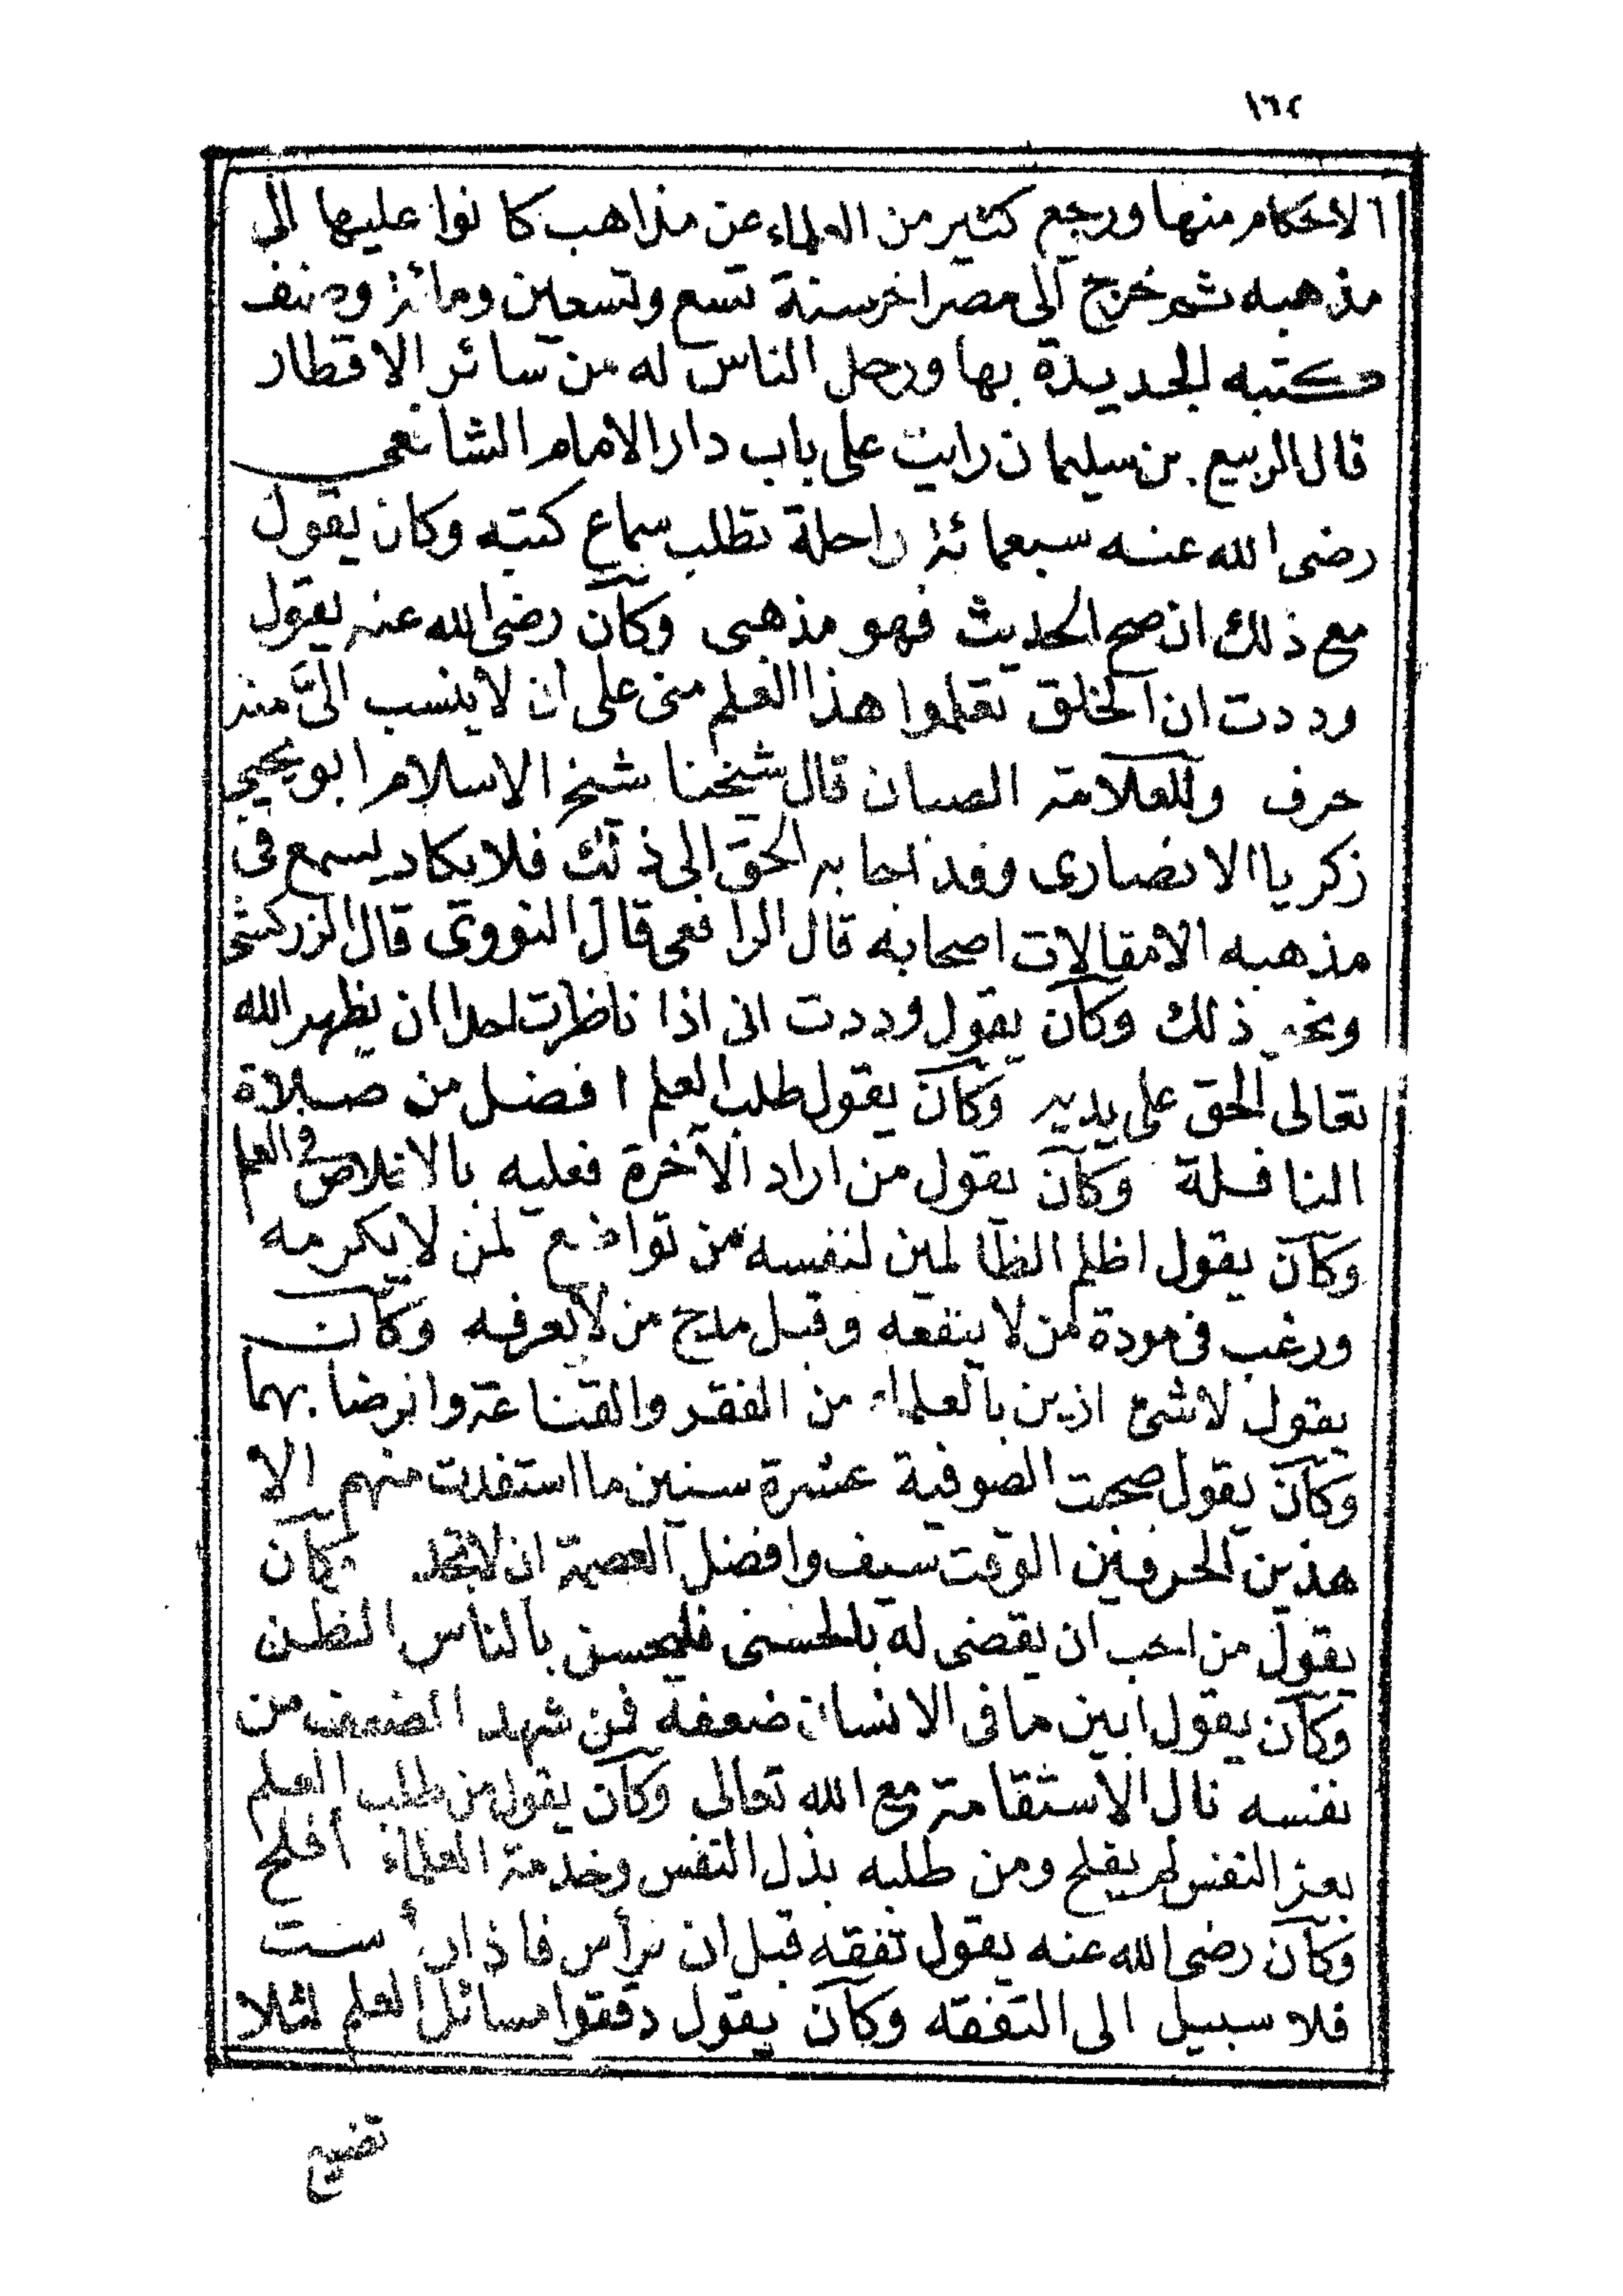 ١٦٢
الاحكام منها ورجع كثير من العلماء عن مذاهب كانوا عليها الى
مذهبه ثم خرج الى مصر اخر سنة تسع وتسعين ومائة وصنف
كتبه الجديدة بها ورحل الناس له من سائر الاقطار
قال الربيع بن سليمان رايت على باب دار الامام الشافعى
رضى الله عنه سبعمائة راحلة تطلب سماع كتبه وكان يقول
مع ذلك ان صح الحديث فهو مذهبى وكان رضى الله عنه يقول
وددت ان الخلق تعلموا هذا العلم منى على أن لا ينسب الىَّ منه
حرف وللعلامة الصبان قال شيخنا شيخ الاسلام ابو يحيى
زكريا الانصارى وقد اجابه الحق الى ذلك فلا يكاد يسمع فى
مذهبه الا مقالات اصحابه قال الرافعى قال النووى قال الزركشى
ونحو ذلك وكان يقول وددت انى اذا ناظرت احدا ان يظهر الله
تعالى الحق على يديه وكان يقول طلب العلم افضل من صلاة
النافلة وكان يقول من اراد الآخرة فعليه بالاخلاص فى العلم
وكان يقول اظلم الظالمين لنفسه من تواضع لمن لا يكرمه
ورغب فى مودة من لا ينفعه وقبل مدح من لا يعرفه وكان
يقول لا شئ ازين بالعلماء من الفقر والقناعة والرضا بهما
وكان يقول صحبت الصوفية عشرة سنين ما استفدت منهم الا
هذين الحرفين الوقت سيف وافضل العصمة ان لا تجد وكان
يقول من احب ان يقضى له بالحسنى فليحسن بالناس الظن
وكان يقول ابين ما فى الانسان ضعفه فمن شهد الضعف من
نفسه نال الاستقامة مع الله تعالى وكان يقول من طلب العلم
بعز النفس لم يفلح ومن طلبه بذل النفس وخدمة العلماء أفلح
وكان رضى الله عنه يقول تفقه قبل ان ترأس فاذا رأست
فلا سبيل الى التفقه وكان يقول دققوا مسائل العلم لئلا
تضيع